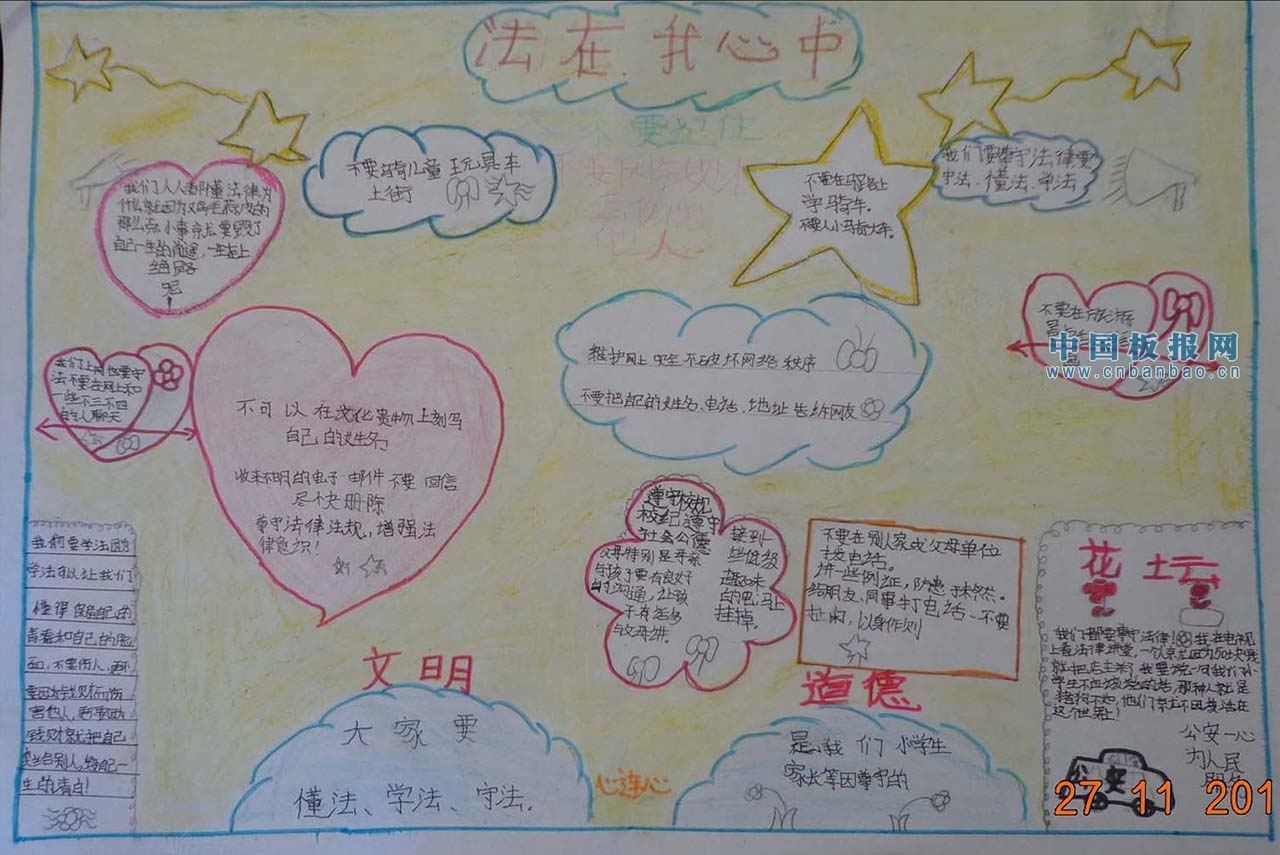 法在我心中
不要骑儿童玩具车
上街
不要在马路上
学骑车。
不要人小骑大车。
我们要遵守法律要
守法、懂法、学法
我们人人都懂法律为
自己一生的前途,一生走上
绝路
呢
我们上网也要守
法不要在网上和
一些不三不四
的人聊天
不可以在文化贵物上刻写
自己的姓名
收来不明的电子邮件不要回信
尽个快册除
尊守法律法规,增强法
律意识!
维护网上安全不破坏网络秩序
不要把自己的姓名、电话、地址告诉网友
不要在
中国板报网
www.cnbanbao.cn
遵守校规
校纪遵守
社会公德
父母特别是母亲
与孩子要有良好
的沟通,让孩
子有话多
与父母讲。
接到
些低级
趣味
的吧,马上
挂掉。
不要在别人家或父母单位
接电话。
讲一些例证,防患于未然。
给朋友、同事打电话一不要
扯闲,以身作则
我们要学法
学法可以让我们
懂得保护自己的
面,不要伤人,更不
害他人,
钱财就把自己
生的清白!
文明
大家要
懂法、学法、守法.
心连心
道德
是我们小学生
家长等因尊守的
花坛
我们都要尊守法律!我在电视
上看法律讲堂,一个就是因为50块钱
就把店主杀了我要说一句我们小
学生不应该说的话,那种人就是
猪狗不如,他们
这个世界上!
公安一心
为人民
公安
27 11 201